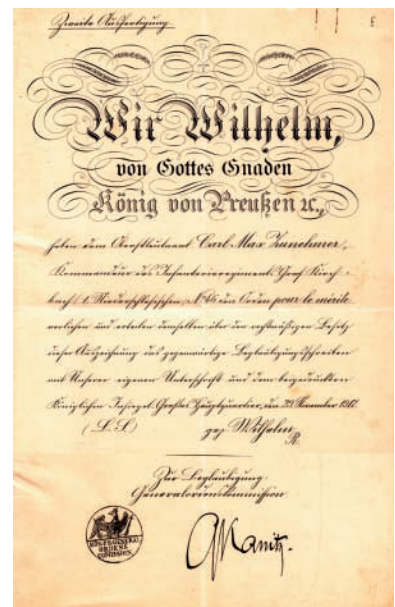 Zweite Ausfertigung.
Wir Wilhelm,
von Gottes Gnaden
König von Preußen ꝛc.,
haben dem Oberstleutnant Carl Max Zunehmer,
Kommandeur des Infanterieregiments Graf Kirch-
bach (1. Niederschlesisches) N: 46 den Orden pour le mérite
verliehen und erteilen demselben über den rechtmäßigen Besitz
dieser Auszeichnung das gegenwärtige Beglaubigungsschreiben
mit Unserer eigenen Unterschrift und dem beigedruckten
Königlichen Insiegel. Großes Hauptquartier, den November 1917
(L. S.) gez. Wilhelm
R.
Zur Beglaubigung:
Generalordenskommission.
ORDENS